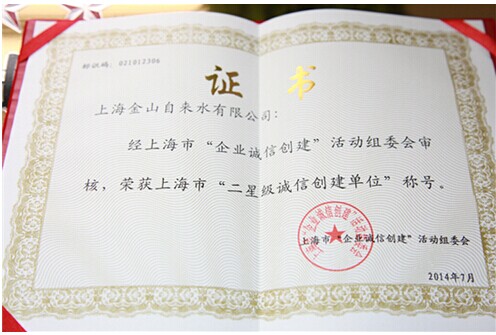 标识码：021012306
证 书
上海金山自来水有限公司：
经上海市“企业诚信创建”活动组委会审
核，荣获上海市“二星级诚信创建单位”称号。
上海市“企业诚信创建”活动组委会
上海市“企业诚信创建”活动组委会
2014年7月